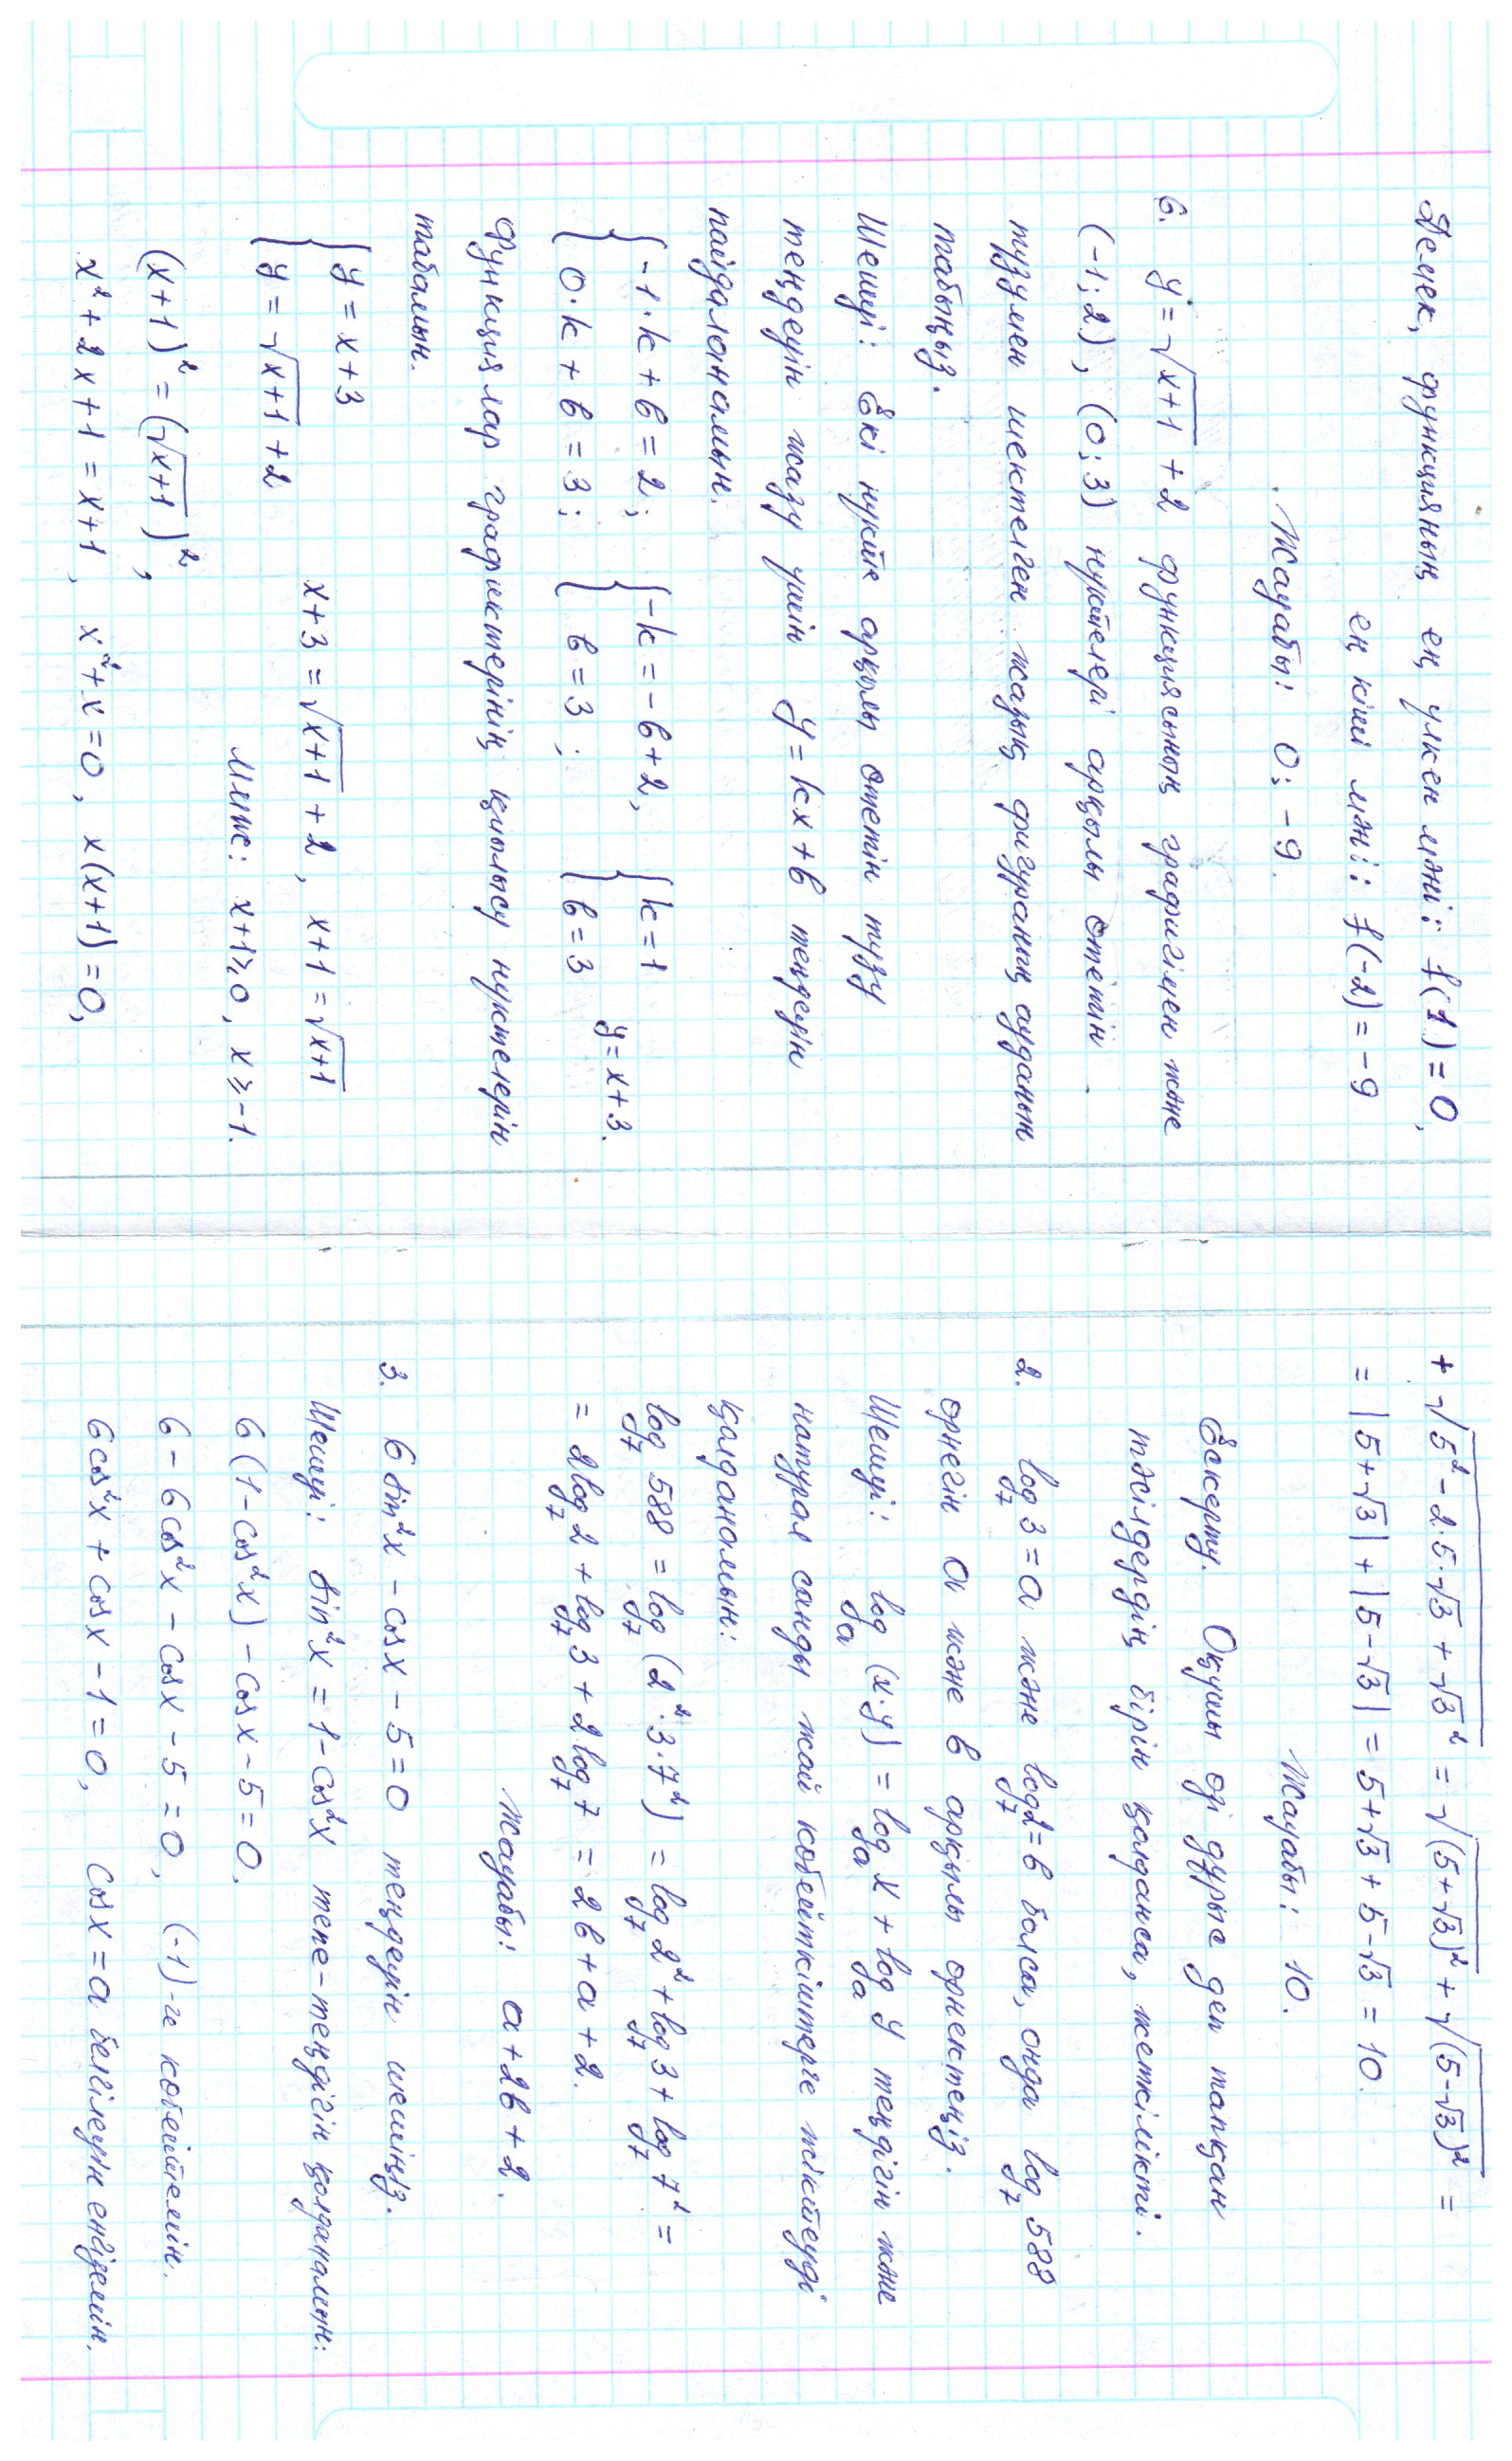 Демек, функцияның ең үлкен мәні: f(1) = 0,
ең кіші мәні: f(-2) = -9
Жауабы: 0; -9.
6. y = √(x+1) + 2 функциясының графигімен және
(-1; 2), (0; 3) нүктелері арқылы өтетін
түзумен шектелген жазық фигураның ауданын
табыңыз.
Шешуі: Екі нүкте арқылы өтетін түзу
теңдеуін жазу үшін y = kx + b теңдеуін
пайдаланамын.
{ -1·k + b = 2; { -k = -b + 2, { k = 1
{ 0·k + b = 3; { b = 3; { b = 3 y = x + 3.
Функциялар графиктерінің қиылысу нүктелерін
табамын.
{ y = x + 3
{ y = √(x+1) + 2 x + 3 = √(x+1) + 2, x + 1 = √(x+1)
Ммж: x + 1 ≥ 0, x ≥ -1.
(x+1)² = (√(x+1))²,
x² + 2x + 1 = x + 1, x² + x = 0, x(x+1) = 0,
+ √(5² - 2·5·√3 + √3²) = √((5+√3)²) + √((5-√3)²) =
= |5+√3| + |5-√3| = 5+√3 + 5-√3 = 10.
Жауабы: 10.
Ескерту. Оқушы өзі дұрыс деп тапқан
тәсілдердің бірін қолданса, жеткілікті.
2. log₇ 3 = a және log₇ 2 = b болса, онда log₇ 588
өрнегін a және b арқылы өрнектеңіз.
Шешуі: logₐ (x·y) = logₐ x + logₐ y теңдігін және
натурал санды жай көбейткіштерге жіктеуді
қолданамын:
log₇ 588 = log₇ (2²·3·7²) = log₇ 2² + log₇ 3 + log₇ 7² =
= 2log₇ 2 + log₇ 3 + 2log₇ 7 = 2b + a + 2.
Жауабы: a + 2b + 2.
3. 6 sin²x - cos x - 5 = 0 теңдеуін шешіңіз.
Шешуі: sin²x = 1 - cos²x тепе-теңдігін қолданамын:
6(1 - cos²x) - cos x - 5 = 0.
6 - 6cos²x - cos x - 5 = 0, (-1)-ге көбейтемін.
6cos²x + cos x - 1 = 0, cos x = a белгілеуін енгіземін.